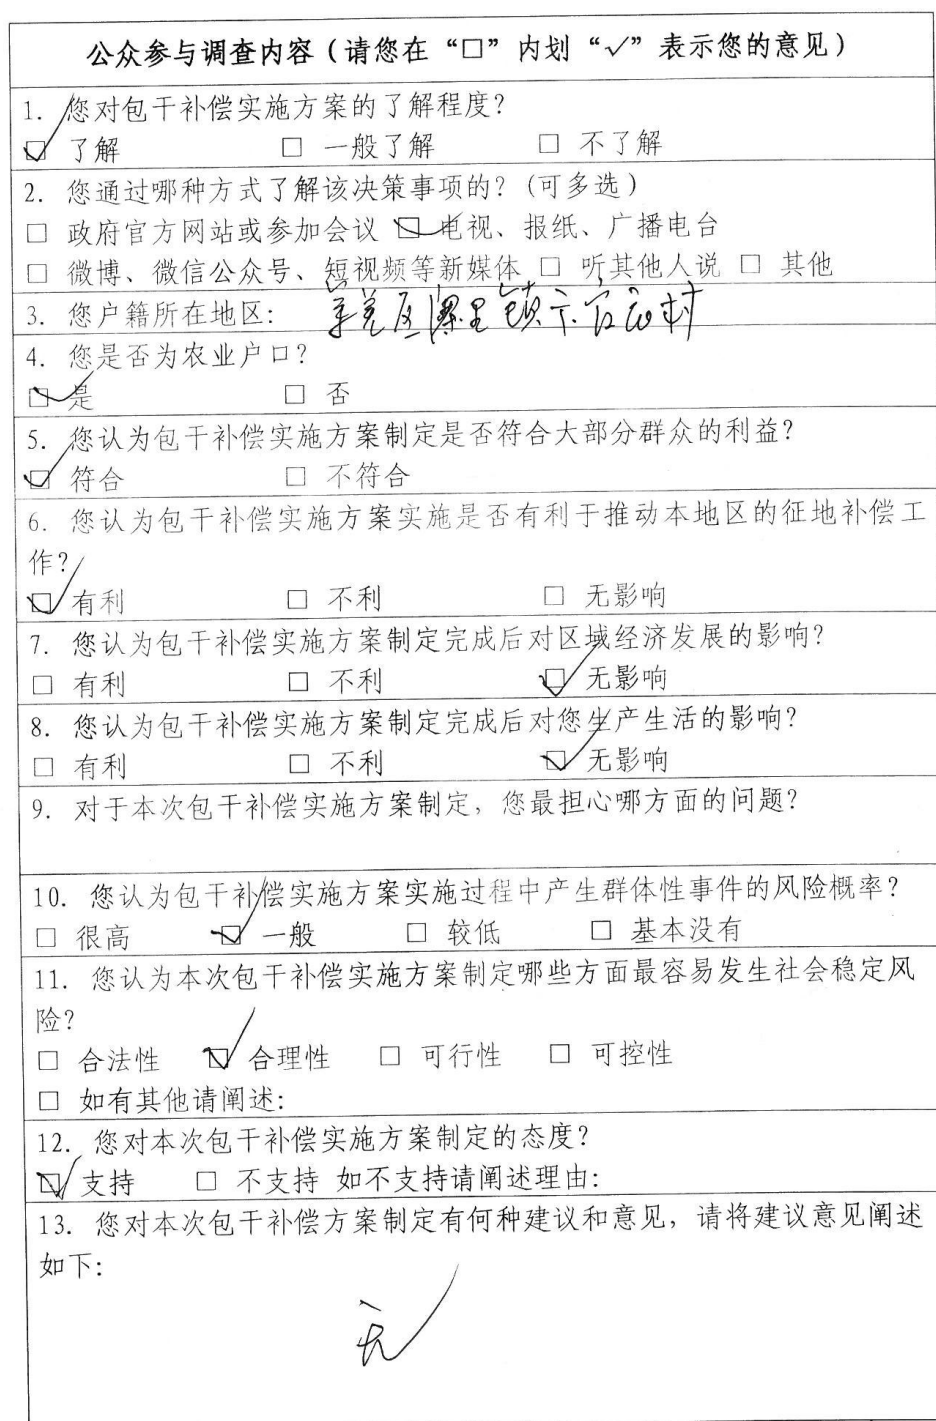 公众参与调查内容（请您在“□”内划“√”表示您的意见）
1. 您对包干补偿实施方案的了解程度？
☑ 了解 □ 一般了解 □ 不了解
2. 您通过哪种方式了解该决策事项的？（可多选）
□ 政府官方网站或参加会议 ☑ 电视、报纸、广播电台
□ 微博、微信公众号、短视频等新媒体 □ 听其他人说 □ 其他
3. 您户籍所在地区：
4. 您是否为农业户口？
☑ 是 □ 否
5. 您认为包干补偿实施方案制定是否符合大部分群众的利益？
☑ 符合 □ 不符合
6. 您认为包干补偿实施方案实施是否有利于推动本地区的征地补偿工
作？
☑ 有利 □ 不利 □ 无影响
7. 您认为包干补偿实施方案制定完成后对区域经济发展的影响？
□ 有利 □ 不利 ☑ 无影响
8. 您认为包干补偿实施方案制定完成后对您生产生活的影响？
□ 有利 □ 不利 ☑ 无影响
9. 对于本次包干补偿实施方案制定，您最担心哪方面的问题？
10. 您认为包干补偿实施方案实施过程中产生群体性事件的风险概率？
□ 很高 ☑ 一般 □ 较低 □ 基本没有
11. 您认为本次包干补偿实施方案制定哪些方面最容易发生社会稳定风
险？
□ 合法性 ☑ 合理性 □ 可行性 □ 可控性
□ 如有其他请阐述：
12. 您对本次包干补偿实施方案制定的态度？
☑ 支持 □ 不支持 如不支持请阐述理由：
13. 您对本次包干补偿方案制定有何种建议和意见，请将建议意见阐述
如下：
无